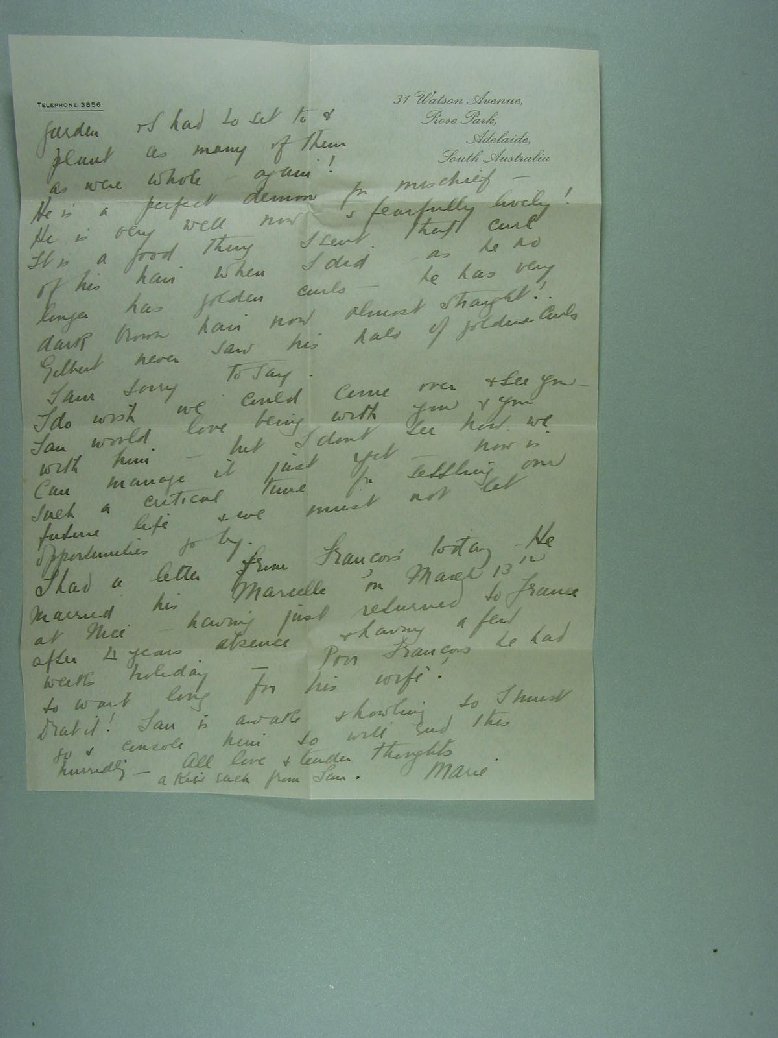 TELEPHONE 3856
37 Watson Avenue,
Rose Park,
Adelaide,
South Australia
garden & I had to set to &
plant as many of them
as were whole – again!
He is a perfect demon for mischief –
He is very well now & fearfully lively!
It is a good thing I sent that curl
of his hair when I did – as he no
longer has golden curls – he has very
dark brown hair now almost straight!!
Gilbert never saw his halo of golden curls
I am sorry to say.
I do wish we could come over & see you –
Ian would love being with you & you
with him – but I dont see how we
can manage it just yet – now is
such a critical time for settling our
future life & we must not let
opportunities go by.
I had a letter from François today He
married his Marcelle on March 13th
at Nice – having just returned to France
after 4 years absence & having a few
weeks holiday – Poor François he had
to wait long for his wife.
Drat it! Ian is awake & howling so I must
go & console him so will end this
hurriedly – All love & tender thoughts
a kiss each from Ian. Marie